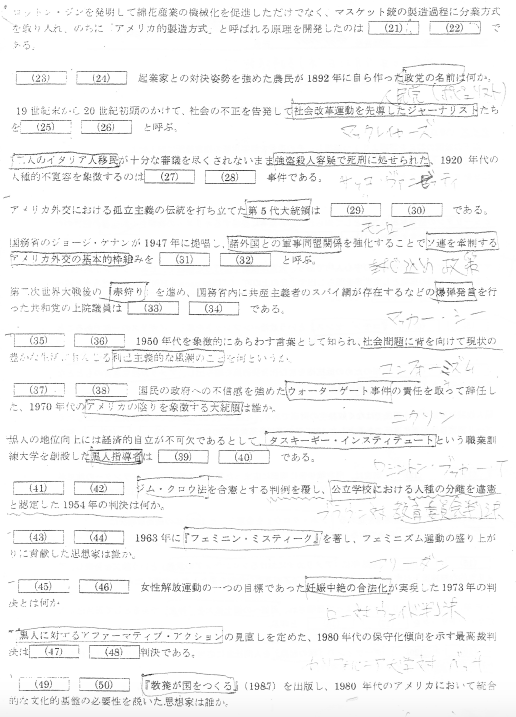 コットン・ジンを発明して綿花産業の機械化を促進しただけでなく、マスケット銃の製造過程に分業方式
を取り入れ、のちに「アメリカ的製造方式」と呼ばれる原理を開発したのは (21) 、 (22) で
ある。
(23) (24) 起業家との対決姿勢を強めた農民が1892年に自ら作った政党の名前は何か。
人民党
19世紀末から20世紀初頭のかけて、社会の不正を告発して社会改革運動を先導したジャーナリストたち
を (25) (26) と呼ぶ。
マックレイカーズ
二人のイタリア人移民が十分な審議を尽くされないまま強盗殺人容疑で死刑に処せられた、1920年代の
人種的不寛容を象徴するのは (27) (28) 事件である。
サッコ・ヴァンゼッティ
アメリカ外交における孤立主義の伝統を打ち立てた第5代大統領は (29) (30) である。
モンロー
国務省のジョージ・ケナンが1947年に提唱し、諸外国との軍事同盟関係を強化することでソ連を牽制する
アメリカ外交の基本的枠組みを (31) (32) と呼ぶ。
封じ込め政策
第二次世界大戦後の『赤狩り』を進め、国務省内に共産主義者のスパイ網が存在するなどの爆弾発言を行
った共和党の上院議員は (33) (34) である。
マッカーシー
(35) (36) 1950年代を象徴的にあらわす言葉として知られ、社会問題に背を向けて現状の
豊かな生活に利己主義的な風潮のことを何というか。
コンフォーミズム
(37) (38) 国民の政府への不信感を強めたウォーターゲート事件の責任を取って辞任し
た、1970年代のアメリカの陰りを象徴する大統領は誰か。
ニクソン
黒人の地位向上には経済的自立が不可欠であるとして、タスキーギー・インスティテュートという職業訓
練大学を創設した黒人指導者は (39) (40) である。
(41) (42) ジム・クロウ法を合憲とする判例を覆し、公立学校における人種の分離を違憲
と認定した1954年の判決は何か。
ブラウン対教育委員会判決
(43) (44) 1963年に『フェミニン・ミスティーク』を著し、フェミニズム運動の盛り上が
りに貢献した思想家は誰か。
フリーダン
(45) (46) 女性解放運動の一つの目標であった妊娠中絶の合法化が実現した1973年の判
決とは何か
ロー対ウェイド判決
黒人に対するアファーマティブ・アクションの見直しを定めた、1980年代の保守化傾向を示す最高裁判
決は (47) (48) 判決である。
(49) (50) 『教養が国をつくる』(1987)を出版し、1980年代のアメリカにおいて統合
的な文化的基盤の必要性を説いた思想家は誰か。